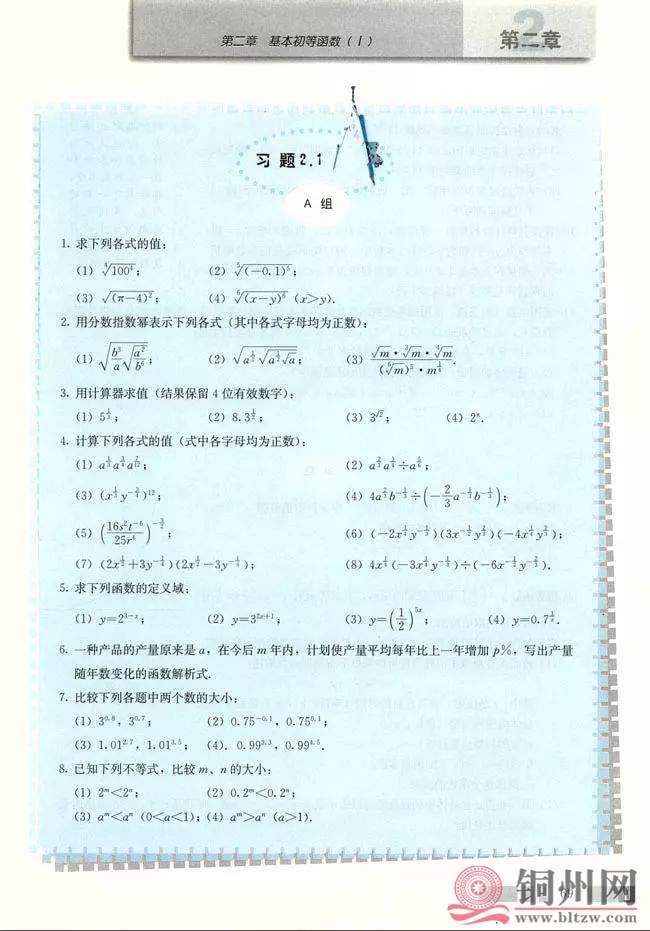 第二章 基本初等函数(Ⅰ)
第二章
习题2.1
A 组
1. 求下列各式的值:
(1) ⁴√(100⁴); (2) ⁵√((-0.1)⁵);
(3) √((π-4)²); (4) ⁶√((x-y)⁶) (x>y).
2. 用分数指数幂表示下列各式(其中各式字母均为正数):
(1) √(b³/a √(a²/b⁶)); (2) √(a^(1/2)√(a^(1/2)√a)); (3) (√m·∛m·⁴√m)/((⁶√m)⁵·m^(1/4)).
3. 用计算器求值(结果保留4位有效数字):
(1) 5^(1/3); (2) 8.3^(1/2); (3) 3^√2; (4) 2^π.
4. 计算下列各式的值(式中各字母均为正数):
(1) a^(1/3)a^(3/4)a^(7/12); (2) a^(2/3)a^(3/4)÷a^(5/6);
(3) (x^(1/3)y^(-3/4))¹²; (4) 4a^(2/3)b^(-1/3)÷(-2/3 a^(-1/3)b^(-1/3));
(5) (16s²t⁻⁶/25r⁴)^(-3/2); (6) (-2x^(1/4)y^(-1/3))(3x^(-1/2)y^(2/3))(-4x^(1/4)y^(2/3));
(7) (2x^(1/2)+3y^(-1/4))(2x^(1/2)-3y^(-1/4)); (8) 4x^(1/4)(-3x^(1/4)y^(-1/3))÷(-6x^(-1/2)y^(-2/3)).
5. 求下列函数的定义域:
(1) y=2^(3-x); (2) y=3^(2x+1); (3) y=(1/2)^(5x); (4) y=0.7^(1/x).
6. 一种产品的产量原来是a,在今后m年内,计划使产量平均每年比上一年增加p%,写出产量
随年数变化的函数解析式.
7. 比较下列各题中两个数的大小:
(1) 3^0.8,3^0.7; (2) 0.75^-0.1,0.75^0.1;
(3) 1.01^2.7,1.01^3.5; (4). 0.99^3.3,0.99^4.5.
8. 已知下列不等式,比较m、n的大小:
(1) 2^m<2^n; (2) 0.2^m<0.2^n;
(3) a^m<a^n (0<a<1); (4) a^m>a^n (a>1).
69
铜州网
www.bltzw.com